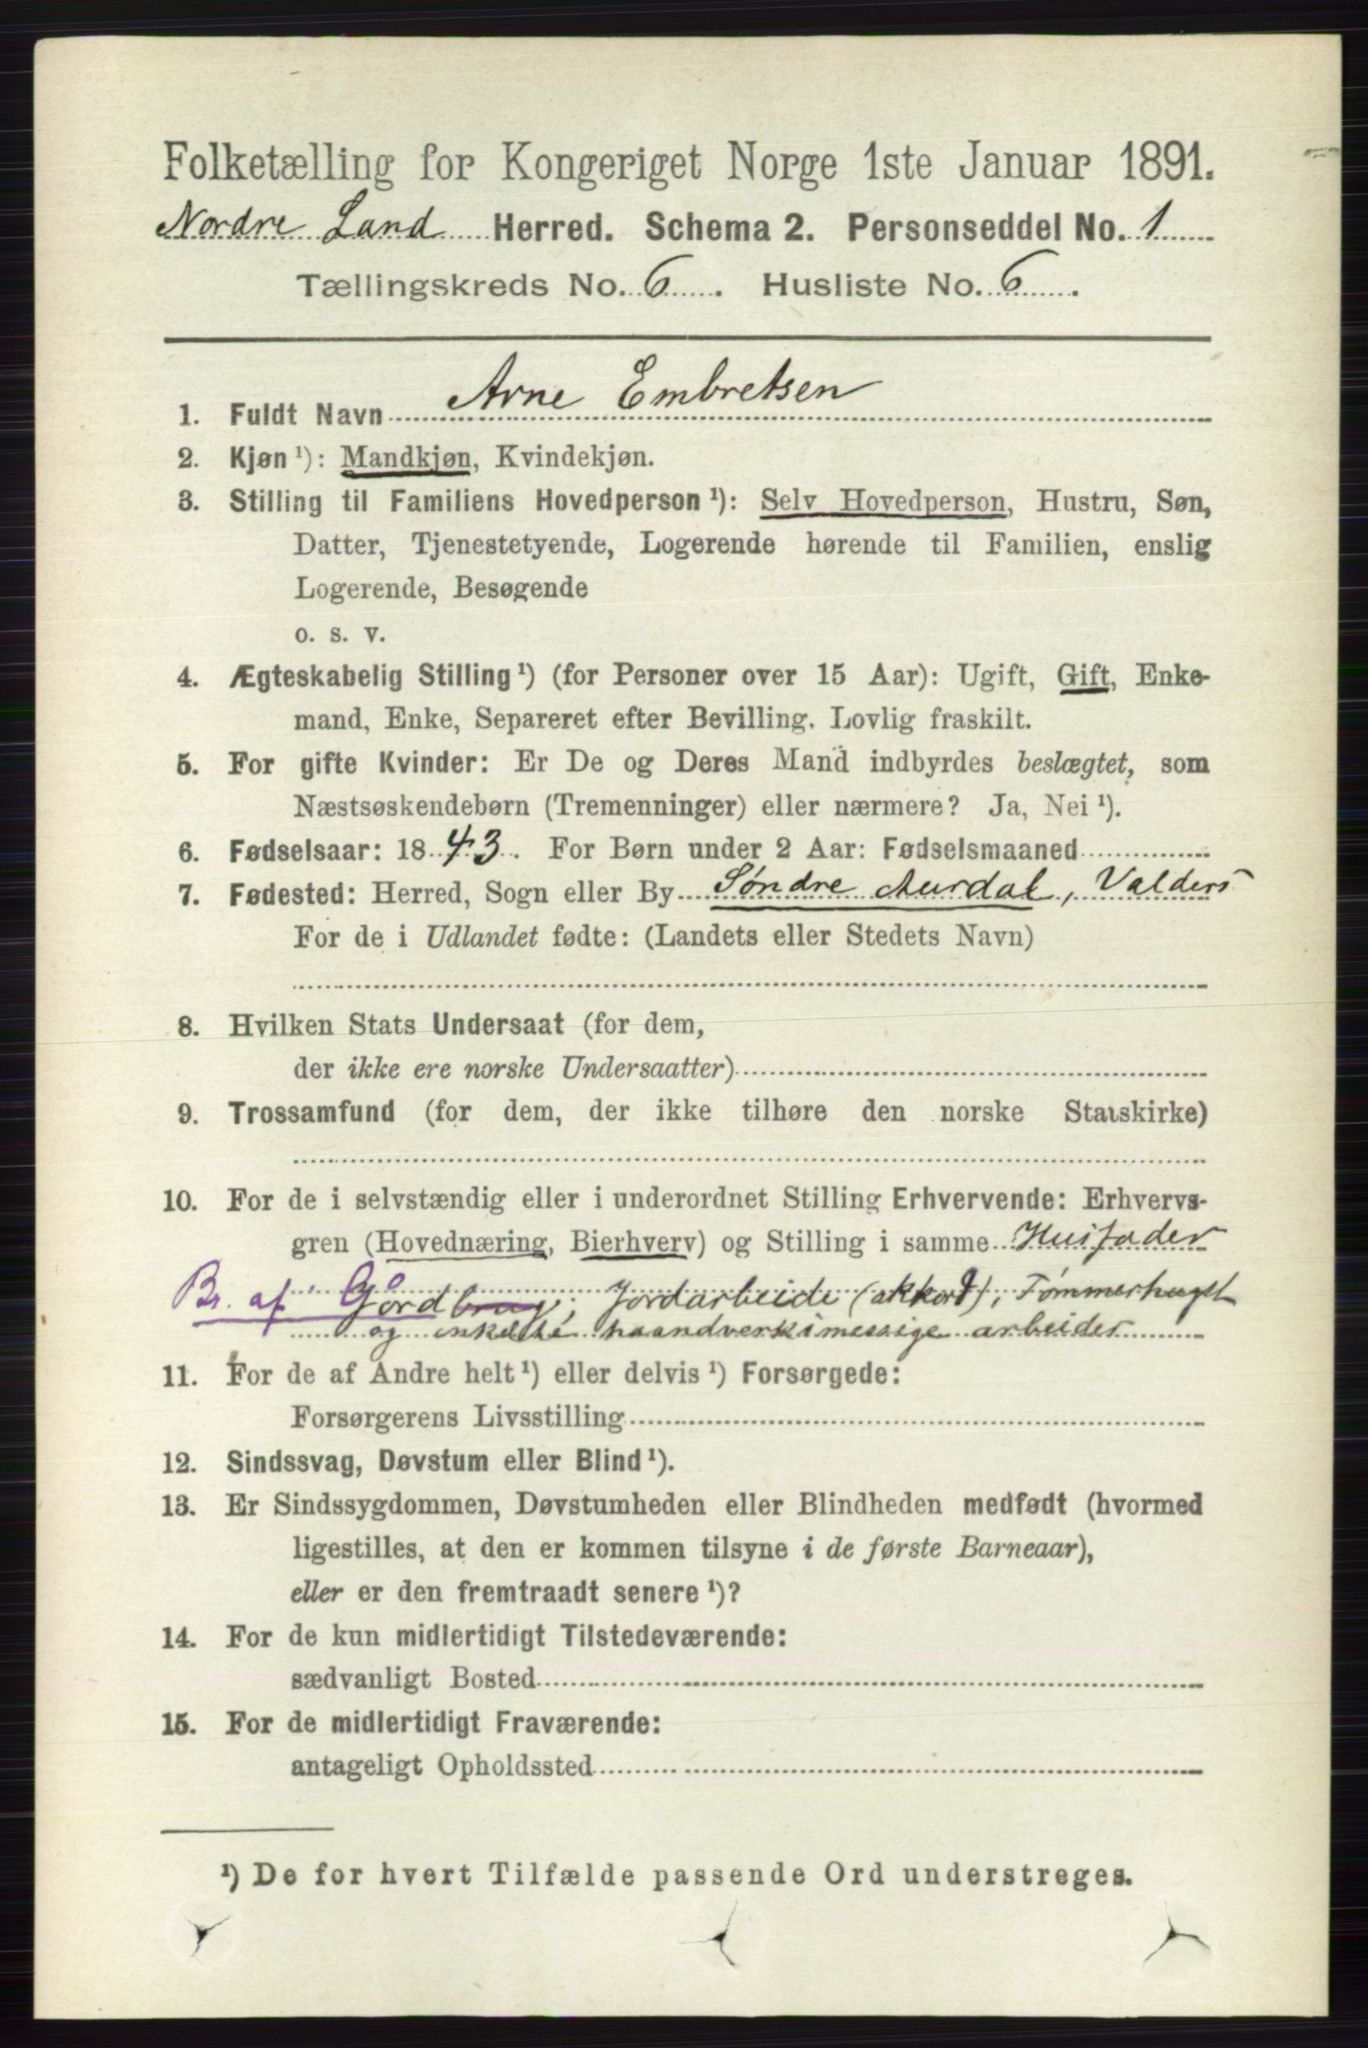 Folketælling for Kongeriget Norge 1ste Januar 1891.
Nordre Land Herred. Schema 2. Personseddel No. 1
Tællingskreds No. 6. Husliste No. 6.
1. Fuldt Navn Arne Embretsen
2. Kjøn ¹): Mandkjøn, Kvindekjøn.
3. Stilling til Familiens Hovedperson ¹): Selv Hovedperson, Hustru, Søn,
Datter, Tjenestetyende, Logerende hørende til Familien, enslig
Logerende, Besøgende
o. s. v.
4. Ægteskabelig Stilling ¹) (for Personer over 15 Aar): Ugift, Gift, Enke-
mand, Enke, Separeret efter Bevilling. Lovlig fraskilt.
5. For gifte Kvinder: Er De og Deres Mand indbyrdes beslægtet, som
Næstsøskendebørn (Tremenninger) eller nærmere? Ja, Nei ¹).
6. Fødselsaar: 1843. For Børn under 2 Aar: Fødselsmaaned
7. Fødested: Herred, Sogn eller By Søndre Aurdal, Valders
For de i Udlandet fødte: (Landets eller Stedets Navn)
8. Hvilken Stats Undersaat (for dem,
der ikke ere norske Undersaatter)
9. Trossamfund (for dem, der ikke tilhøre den norske Statskirke)
10. For de i selvstændig eller i underordnet Stilling Erhvervende: Erhvervs-
gren (Hovednæring, Bierhverv) og Stilling i samme Husfader
Br. af Gårdbrug, Jordarbeide (akkord), Tømmerhugst
og enkelte haandverksmessige arbeider
11. For de af Andre helt ¹) eller delvis ¹) Forsørgede:
Forsørgerens Livsstilling
12. Sindssvag, Døvstum eller Blind ¹).
13. Er Sindssygdommen, Døvstumheden eller Blindheden medfødt (hvormed
ligestilles, at den er kommen tilsyne i de første Barneaar),
eller er den fremtraadt senere ¹)?
14. For de kun midlertidigt Tilstedeværende:
sædvanligt Bosted
15. For de midlertidigt Fraværende:
antageligt Opholdssted
¹) De for hvert Tilfælde passende Ord understreges.